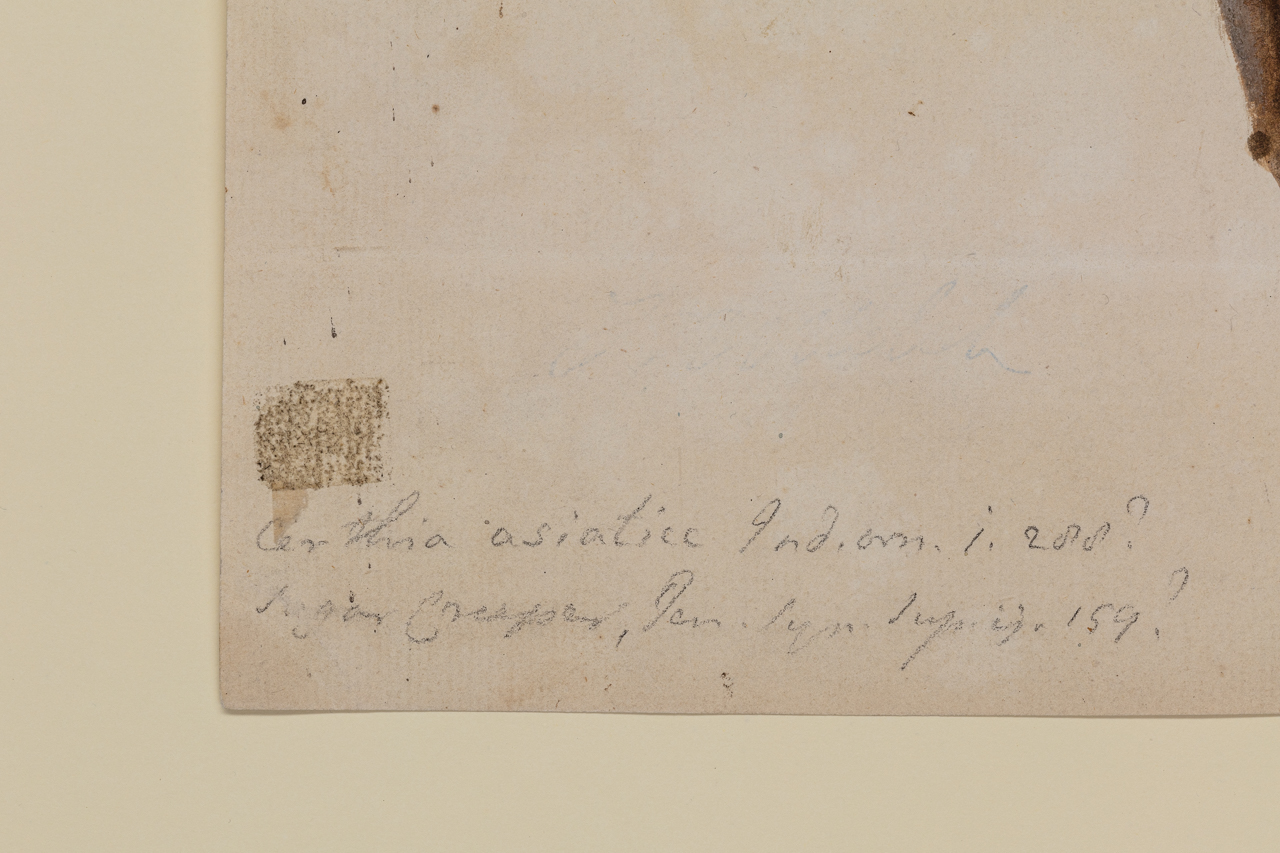 Certhia asiatica Ind. orn. i. 288?
Sugar Creeper, Gen. Syn. Sup. ij. 159?